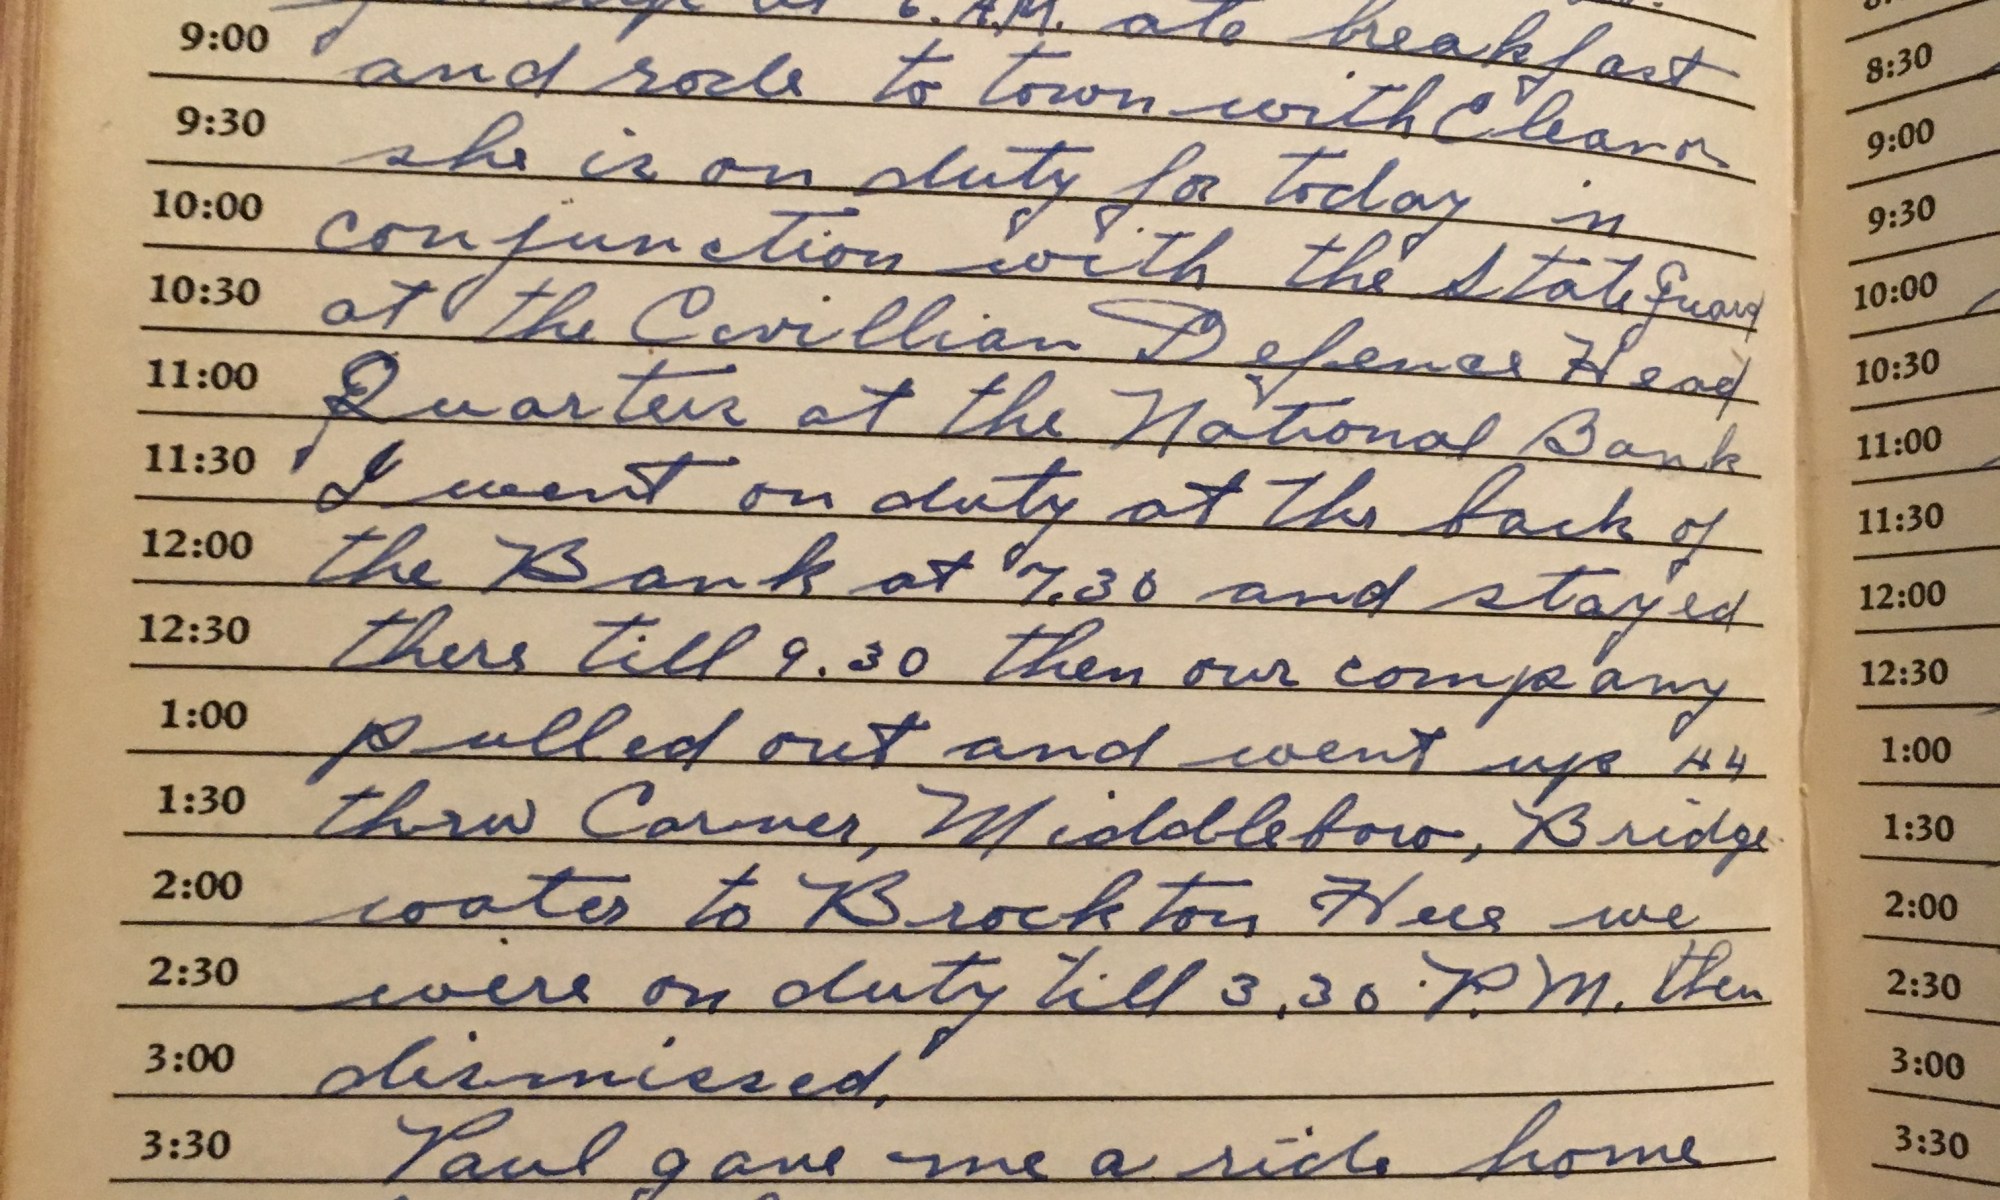 at 6. A.M. ate breakfast
9:00 and rode to town with Eleanor
9:30 she is on duty for today in
10:00 conjunction with the State Guard
10:30 at the Civillian Defence Head
11:00 Quarters at the National Bank
11:30 I went on duty at the back of
12:00 the Bank at 7.30 and stayed
12:30 there till 9.30 then our company
1:00 pulled out and went up 44
1:30 thru Carver, Middleboro, Bridge
2:00 water to Brockton Here we
2:30 were on duty till 3.30 P.M. then
3:00 dismissed.
3:30 Paul gave me a ride home
8:30
9:00
9:30
10:00
10:30
11:00
11:30
12:00
12:30
1:00
1:30
2:00
2:30
3:00
3:30